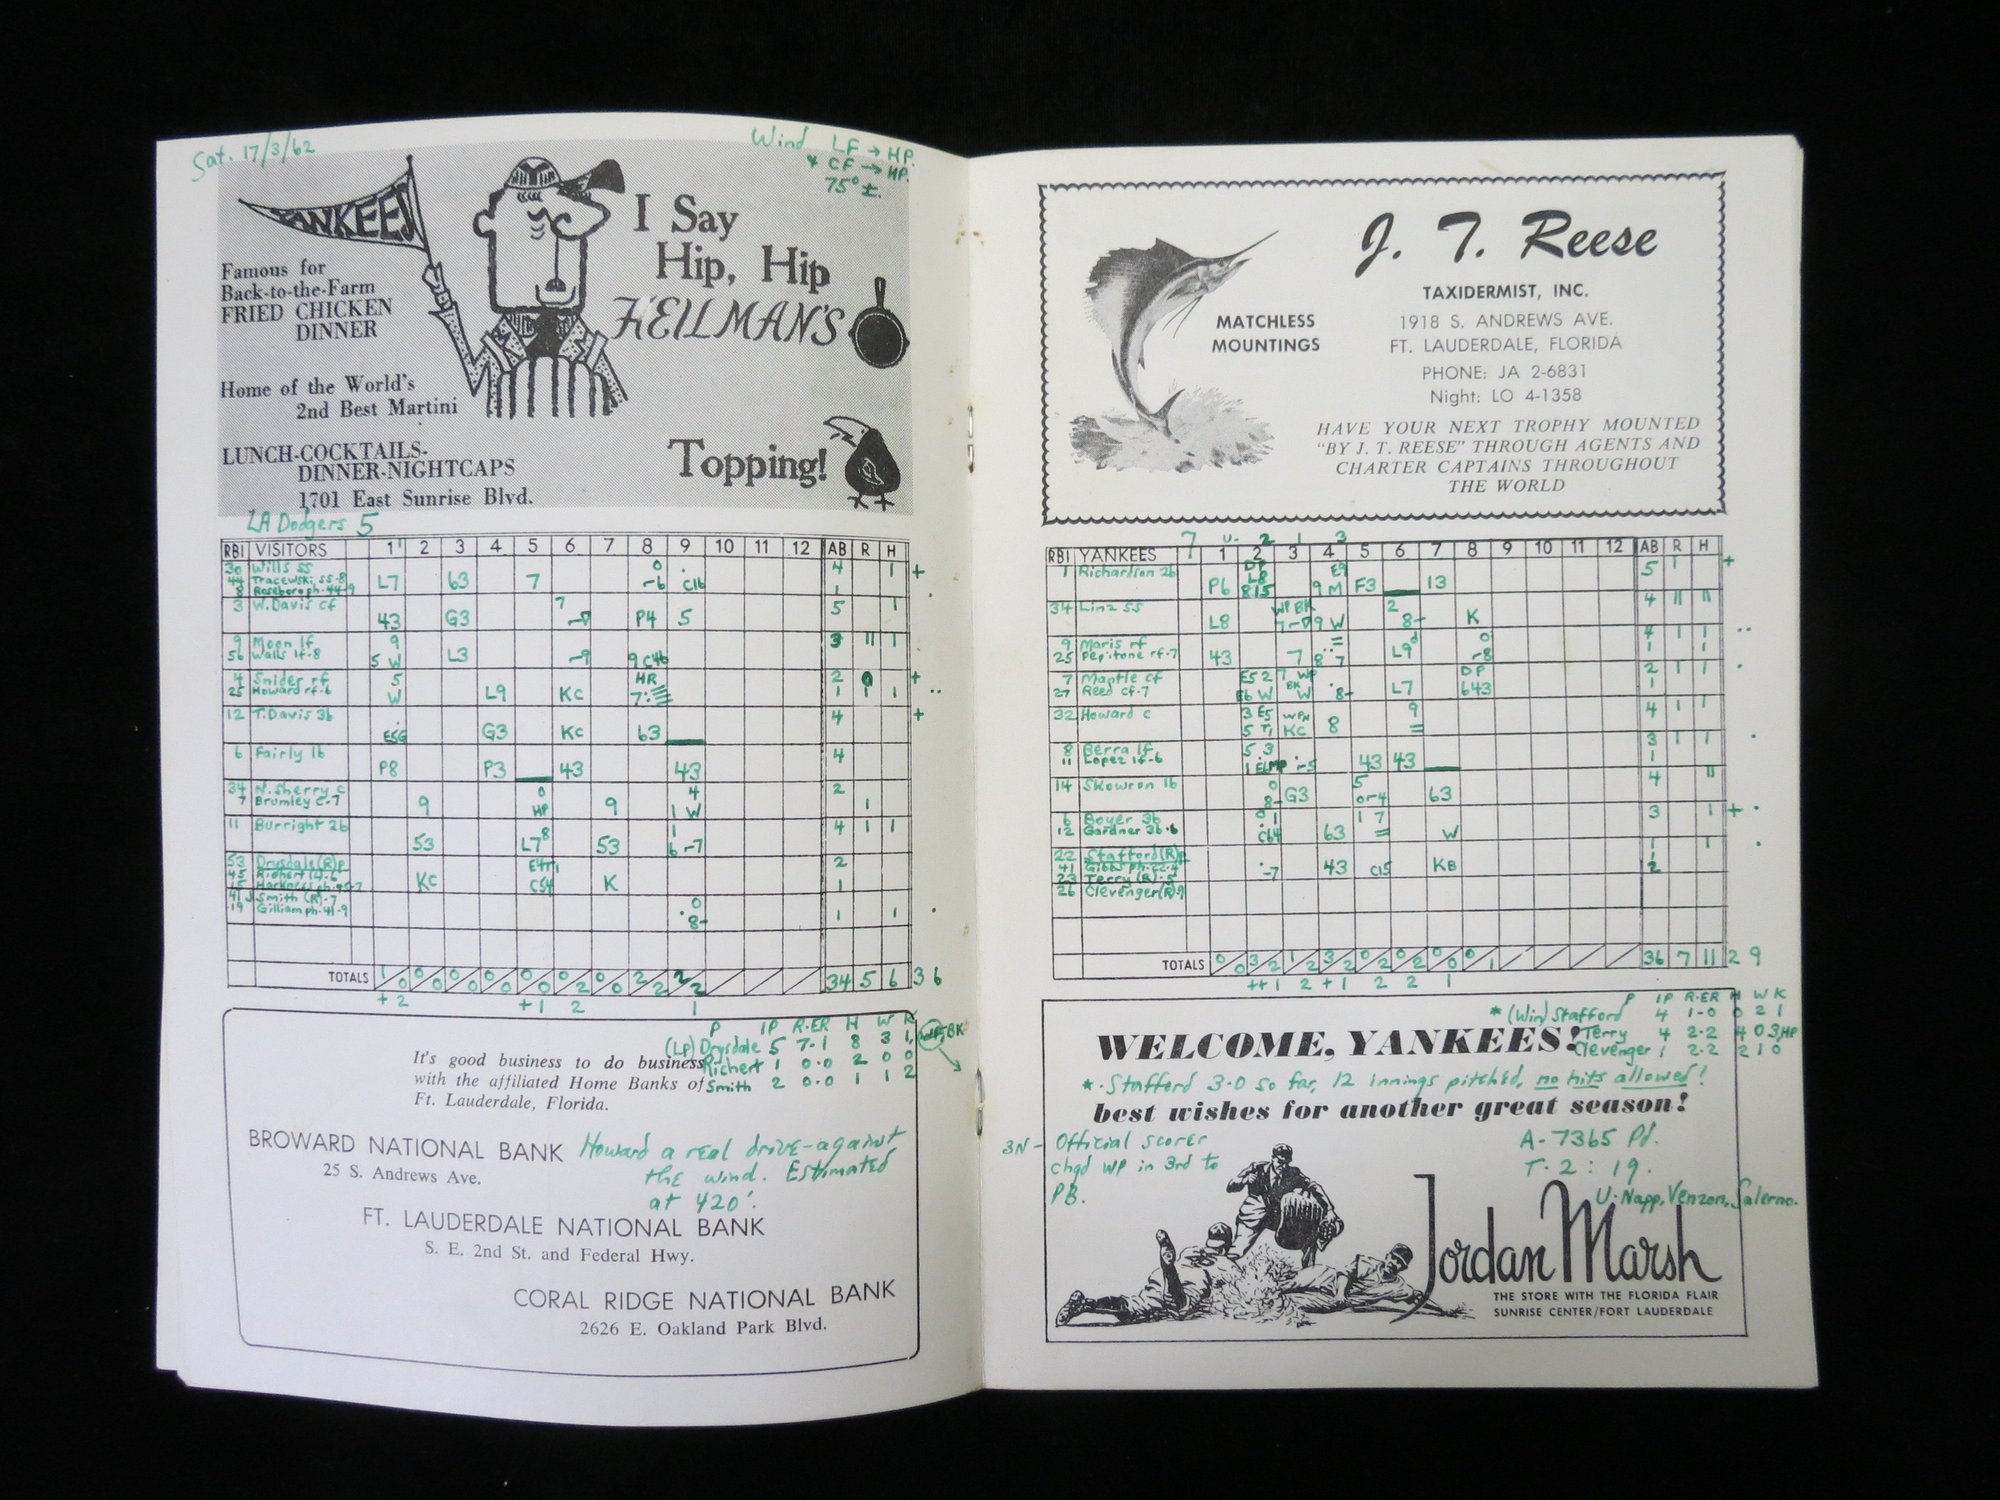 Sat. 17/3/62
Wind LF → HP.
& CF → HP.
75° ±.
YANKEES
I Say
Hip, Hip
HEILMAN'S
Famous for
Back-to-the-Farm
FRIED CHICKEN
DINNER
Home of the World's
2nd Best Martini
LUNCH-COCKTAILS-
DINNER-NIGHTCAPS
1701 East Sunrise Blvd.
Topping!
LA Dodgers 5
RBI VISITORS 1 2 3 4 5 6 7 8 9 10 11 12 AB R H
30 Wills ss
44 Tracewski ss-8
8 Roseboro ph-44-9
L7 63 7 -6 C16 4 1 +
3 W. Davis cf 43 G3 7 P4 5 5 1
9 Moon lf 9 3 11 1
56 Walls lf-8 5 W L3 -9 9 C46
4 Snider rf 5 HR 2 +
25 Howard rf-6 W L9 KC 7 1 1 1
12 T. Davis 3b E5G G3 KC 63 4 +
6 Fairly 1b P8 P3 43 43 4
34 N. Sherry c 0 4 2
7 Brumley c-7 9 HP 9 1 W 1
11 Burright 2b 53 L7 8 53 6-7 4 1 1
53 Drysdale (R) p 2
45 Richert (L)-6
15 Harkness ph-45-7 KC C54 K 1
41 J. Smith (R)-7
19 Gilliam ph-41-9 0 8- 1 1
TOTALS 34 5 6 3 6
+2 +1 2 1
P IP R-ER H W K
(LP) Drysdale 5 7-1 8 3 1, WP, BK
Richert 1 0-0 2 0 0
Smith 2 0-0 1 1 2
It's good business to do business
with the affiliated Home Banks of
Ft. Lauderdale, Florida.
BROWARD NATIONAL BANK
25 S. Andrews Ave.
Howard a real drive-against
the wind. Estimated
at 420'.
FT. LAUDERDALE NATIONAL BANK
S. E. 2nd St. and Federal Hwy.
CORAL RIDGE NATIONAL BANK
2626 E. Oakland Park Blvd.
J. T. Reese
TAXIDERMIST, INC.
MATCHLESS
MOUNTINGS
1918 S. ANDREWS AVE.
FT. LAUDERDALE, FLORIDA
PHONE: JA 2-6831
Night: LO 4-1358
HAVE YOUR NEXT TROPHY MOUNTED
"BY J. T. REESE" THROUGH AGENTS AND
CHARTER CAPTAINS THROUGHOUT
THE WORLD
7 2 1 3
RBI YANKEES 1 2 3 4 5 6 7 8 9 10 11 12 AB R H
1 Richardson 2b P6 DP L8 815 E9 9 M F3 13 5 1 +
34 Linz ss L8 WP BK 9 W 2 8- K 4 11 11
9 Maris rf 4 1 1
25 Pepitone rf-7 43 7 8 7 L9 -8 1 1
7 Mantle cf E5 2 7 WP DP 2 1 1
27 Reed cf-7 E6 W BK W 8- L7 643 1
32 Howard c 3 E5 KC 8 9 4 1 1
8 Berra lf 5 3 3 1 1
11 Lopez lf-6 -5 43 43 1
14 Skowron 1b 0 8- G3 5 0-4 63 4 11
6 Boyer 3b 0 1 1 7 3 1 +
12 Gardner 3b-6 C64 63 W 1 1
22 Stafford (R) p 1
41 Gibbs ph-22-4 -7 43 C15 KB
23 Terry (R)-5 2
26 Clevenger (R)-9
TOTALS 36 7 11 2 9
++1 2 +1 2 2 1
P IP R-ER H W K
* (Win) Stafford 4 1-0 0 2 1
Terry 4 2-2 4 0 3, HP
Clevenger 1 2-2 2 1 0
WELCOME, YANKEES!
*. Stafford 3-0 so far, 12 innings pitched, no hits allowed!
best wishes for another great season!
3N - Official scorer
chgd WP in 3rd to
PB.
A- 7365 Pd.
T- 2:19.
U- Napp, Venzon, Salerno.
Jordan Marsh
THE STORE WITH THE FLORIDA FLAIR
SUNRISE CENTER/FORT LAUDERDALE